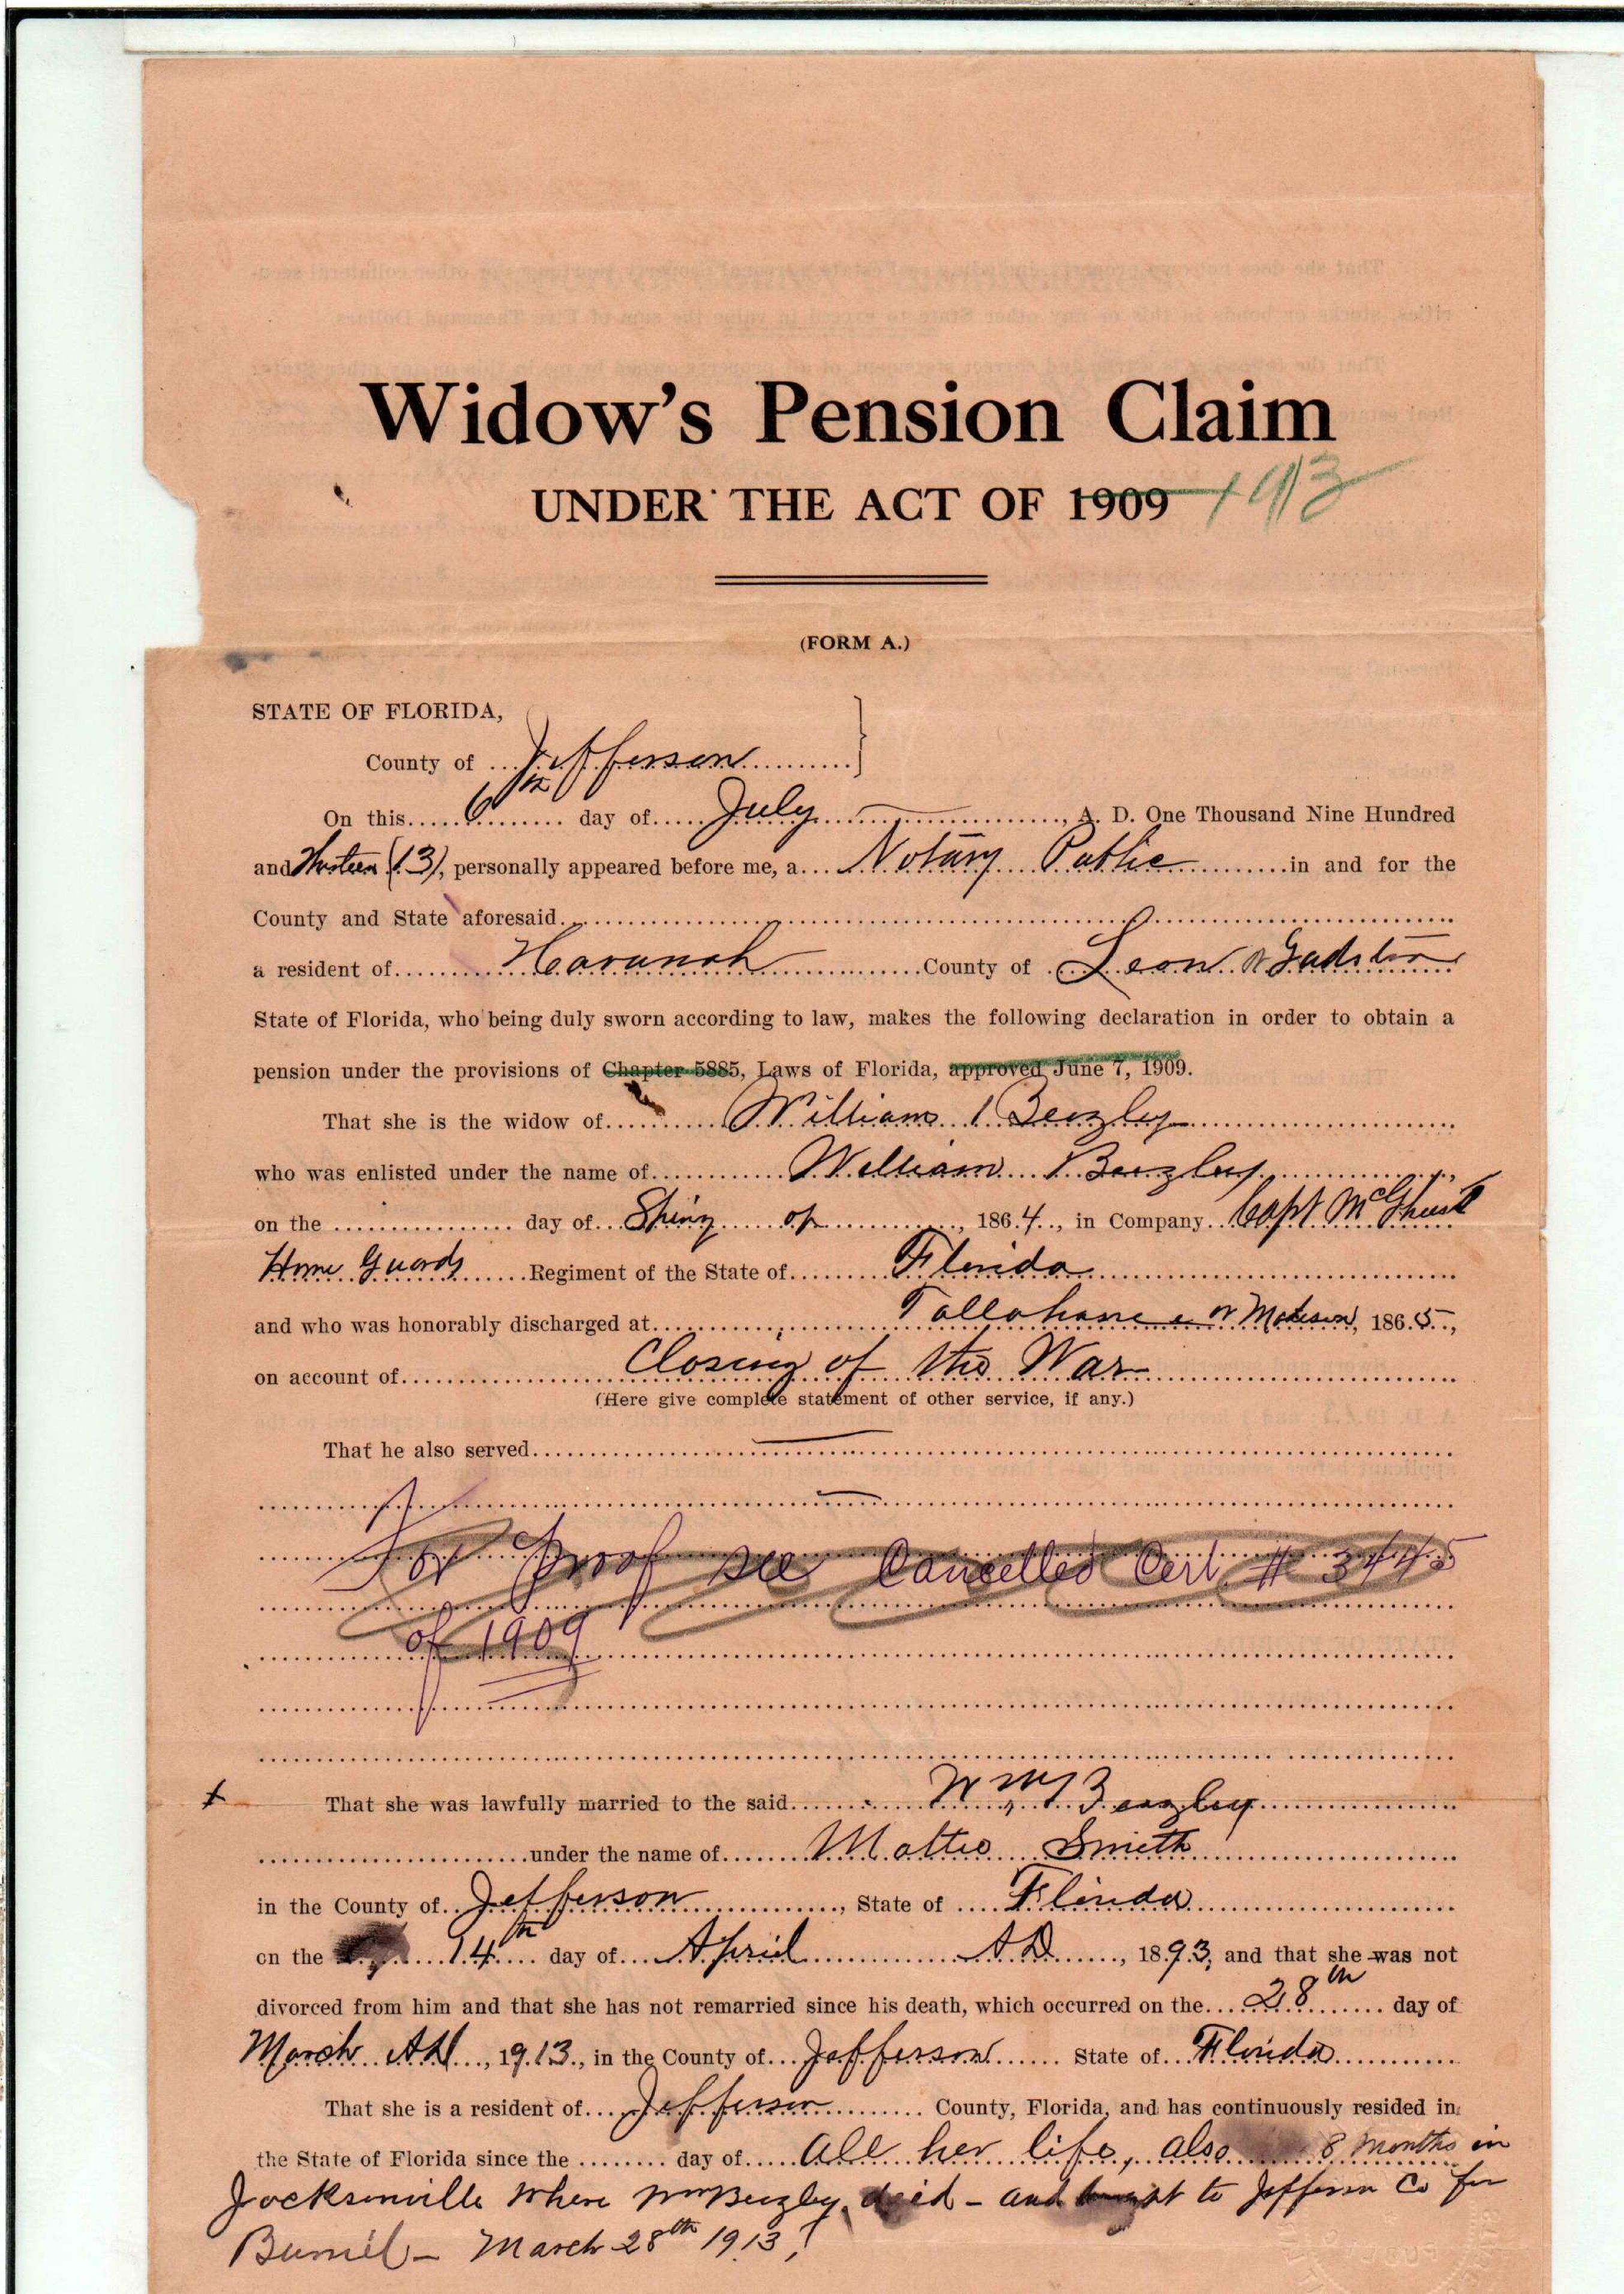 Widow's Pension Claim
UNDER THE ACT OF 1909 1913
(FORM A.)
STATE OF FLORIDA,
County of Jefferson
On this 6th day of July, A. D. One Thousand Nine Hundred
and thirteen (13), personally appeared before me, a Notary Public in and for the
County and State aforesaid
a resident of Havanah County of Leon or
State of Florida, who being duly sworn according to law, makes the following declaration in order to obtain a
pension under the provisions of Chapter 5885, Laws of Florida, approved June 7, 1909.
That she is the widow of William Beezley
who was enlisted under the name of William Beezley,
on the day of Spring of, 1864, in Company Capt
Home Guards Regiment of the State of Florida
and who was honorably discharged at Tallahassee or Madison, 1865,
on account of Closing of the War
(Here give complete statement of other service, if any.)
That he also served
For proof see Cancelled Cert. # 3445
of 1909
x That she was lawfully married to the said Wm Beazley
under the name of Mattie Smith
in the County of Jefferson, State of Florida
on the 14th day of April A.D., 1893, and that she was not
divorced from him and that she has not remarried since his death, which occurred on the 28th day of
March A.D., 1913, in the County of Jefferson State of Florida
That she is a resident of Jefferson County, Florida, and has continuously resided in
the State of Florida since the day of all her life, also 8 months in
Jacksonville where Wm Beezley died - and brought to Jefferson Co for
Burriel - March 28th 1913,